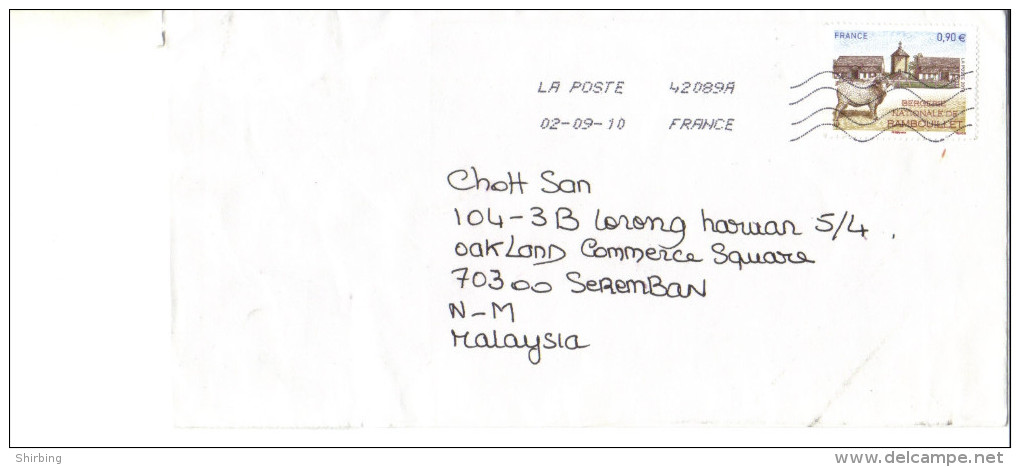 FRANCE 0,90 €
LA POSTE 42089A
02-09-10 FRANCE
BERGERIE
NATIONALE DE
RAMBOUILLET
Chott San
104-3B Lorong haruan 5/4
oakLand Commerce Square
70300 SeRemBan
N-M
Malaysia
Shirbing
www.delcampe.net